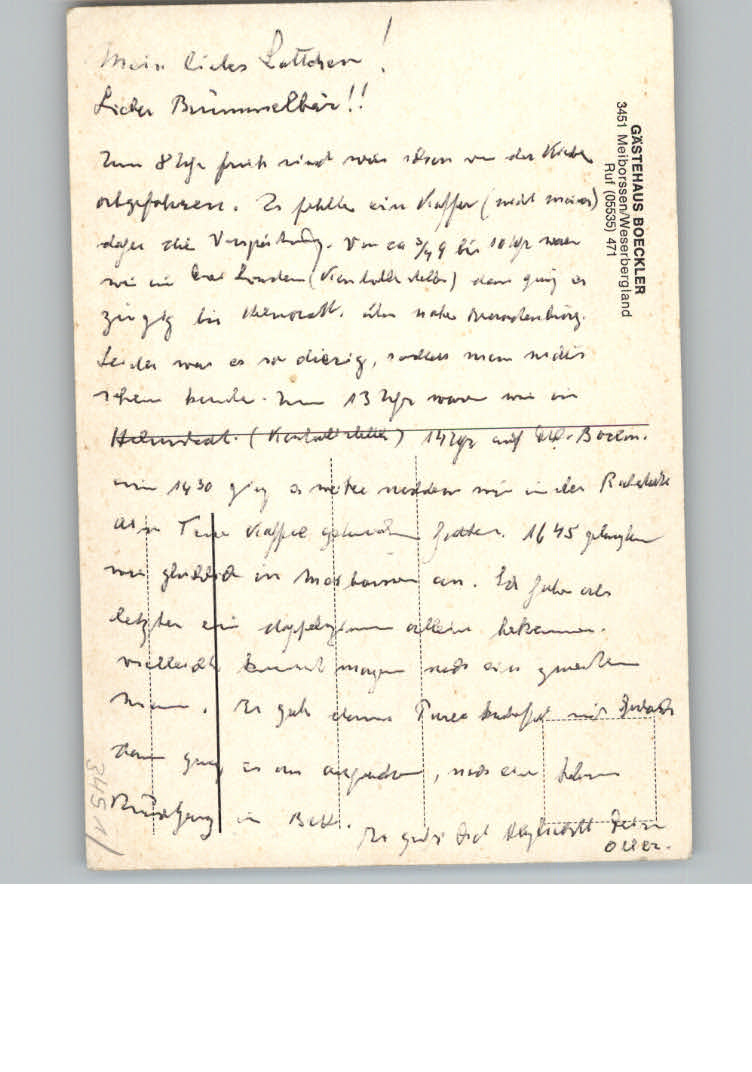 Mein liebes Lottchen!
Lieber Brummelbär!!
Zum 8 Uhr früh sind wir schon von der
abgefahren. Es fehlte ein Koffer (nicht meiner)
daher die Verspätung. Von ca 3/4 9 bis 10 Uhr waren
wir in (Kontrollstelle) dann ging es
zügig bis Helmstedt. über nahe Brandenburg.
Leider war es so diesig, sodass man nichts
sehen konnte. Um 13 Uhr waren wir in
Helmstedt. (Kontrollstelle) 14 Uhr auf
um 14 30 ging es weiter nachdem wir in der
eine Tasse Kaffee getrunken hatten. 16 45 gelangten
wir glücklich in Meiborssen an. Ich habe als
letzter ein Doppelzimmer allein bekommen.
vielleicht kommt morgen noch ein zweiter
Mann. Es gab dann mit
dann ging es ans auspacken, nach einem
Rundgang in Bett.
Es grüßt Dich herzlichst Dein
GÄSTEHAUS BOECKLER
3451 Meiborssen/Weserbergland
Ruf (05535) 471
3451/